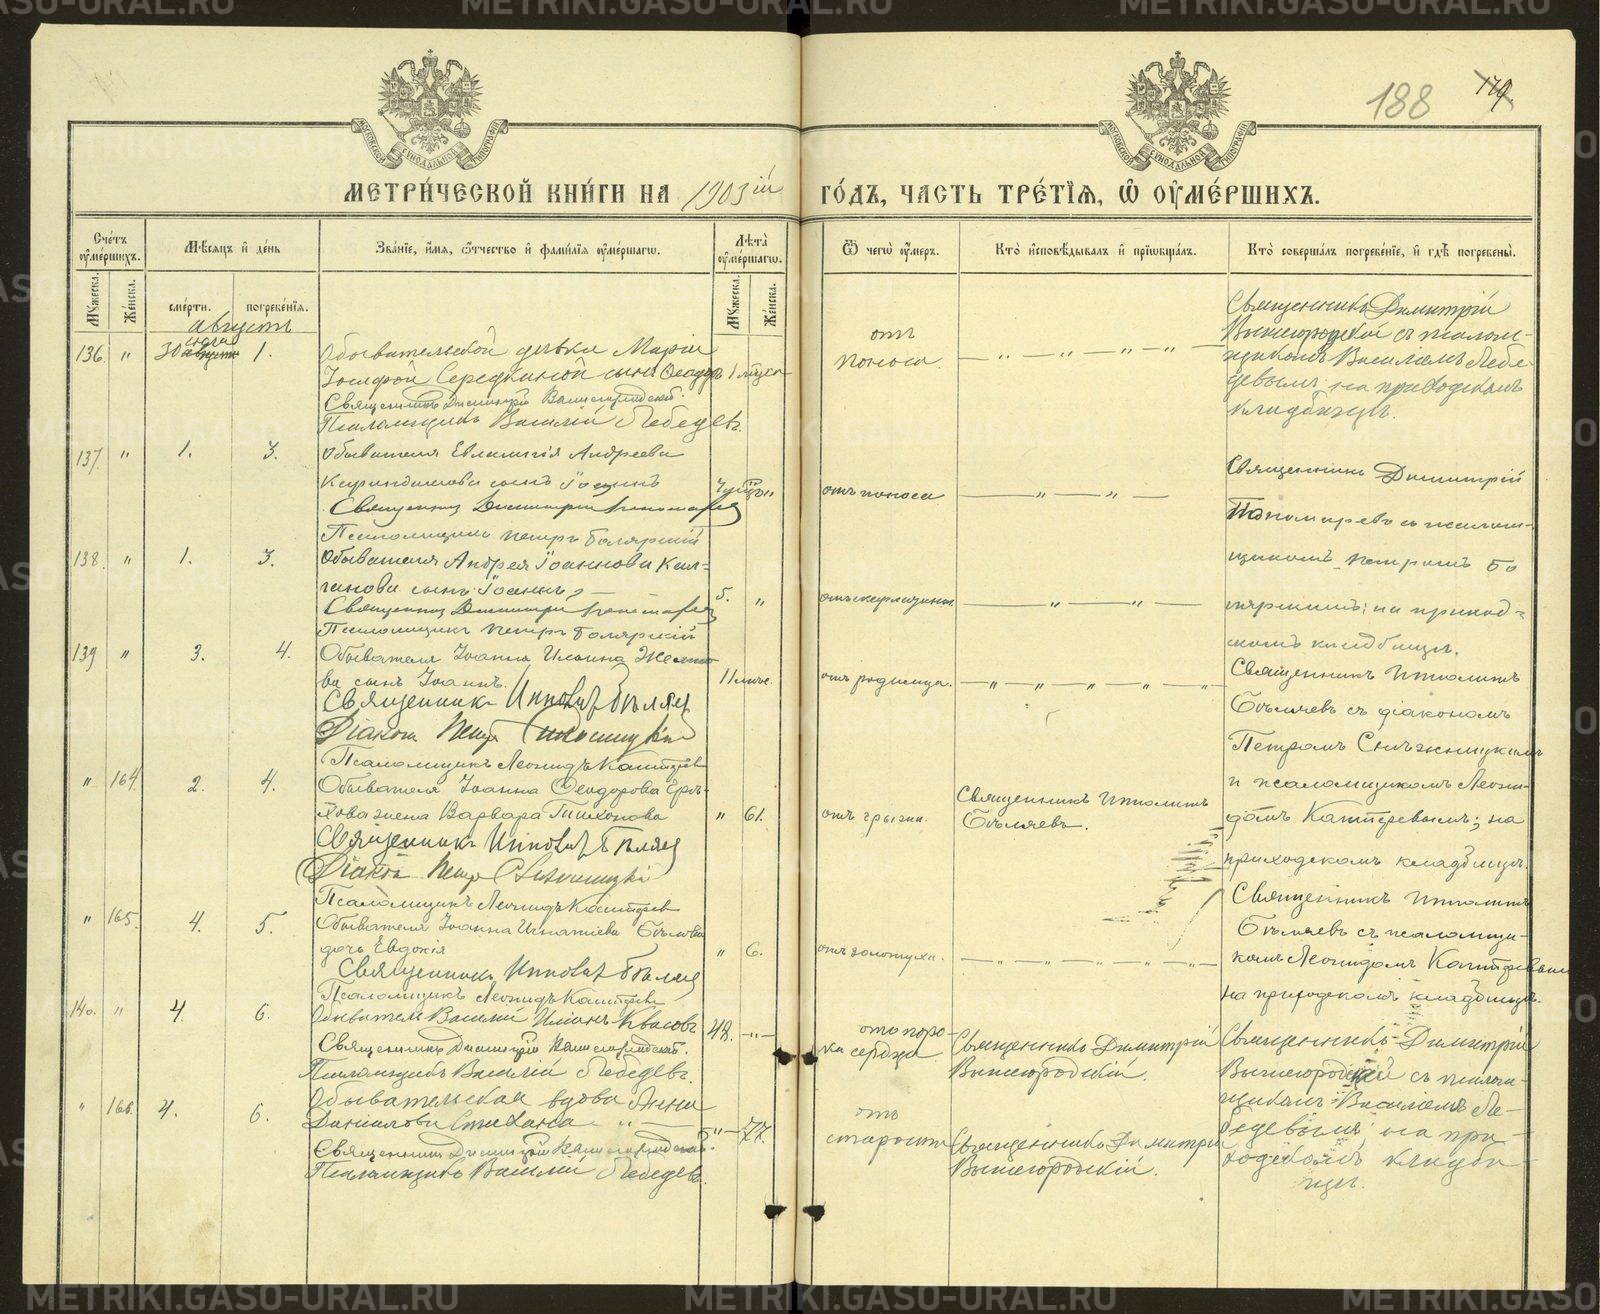 METRIKI.GASO-URAL.RU
188
179
МОСКОВСКОЙ СѴНОДАЛЬНОЙ ТИПОГРАФІИ
МОСКОВСКОЙ СѴНОДАЛЬНОЙ ТИПОГРАФІИ
МЕТРИ́ЧЕСКОЙ КНИ́ГИ НА 1903ій ГО́ДЪ, ЧАСТЬ ТРЕ́ТІѦ, Ѡ ОУ҆МЕ́РШИХЪ.
Сче́тъ оу҆ме́ршихъ.
Мѣ́сѧцъ и҆ де́нь
Зва́нїе, и҆́мѧ, ѻ҆́тчество и҆ фами́лїѧ оу҆ме́ршагѡ.
Лѣ́та оу҆ме́ршагѡ.
Ѿ чегѡ̀ оу҆́меръ.
Кто̀ и҆сповѣ́дывалъ и҆ прїѡбща́лъ.
Кто̀ соверша́лъ погребе́нїе, и҆ гдѣ̀ погребены̀.
Мꙋ́жеска. Же́нска. сме́рти. погребе́нїѧ. Мꙋ́жеска. Же́нска.
августъ
136. " 30 іюля 1.
Обывательской дѣвки Маріи
Іосифовой Середкиной сынъ Ѳеодоръ 1 мѣсяц
Священникъ Димитрій Вышегородскій.
Псаломщикъ Василій Лебедевъ.
отъ поноса.
Священникъ Димитрій
Вышегородской съ псалом-
щикомъ Василіемъ Лебе-
девымъ; на приходскомъ
кладбищѣ.
137. " 1. 3.
Обывателя Евлампія Андреева
сынъ Іоаннъ
Священникъ Димитрій Пономаревъ
Псаломщикъ Петръ Боярскій
отъ поноса
Священникъ Димитрій
Пономаревъ съ псалом-
щикомъ Петромъ Бо
ярскимъ; на приход-
скомъ кладбищѣ.
138. " 1. 3.
Обывателя Андрея Іоаннова Кал-
ганова сынъ Іоаннъ 5. "
Священникъ Димитрій Пономаревъ
Псаломщикъ Петръ Боярскій
отъ скарлатины
139 " 3. 4.
Обывателя Іоанна Ильина
ва сынъ Іоаннъ. 11 мѣс.
Священникъ Ипполитъ Бѣляев
Діаконъ Петръ Снѣжницкій
Псаломщикъ Леонидъ Каптеревъ
отъ родимца.
Священникъ Ипполитъ
Бѣляевъ съ діакономъ
Петромъ Снѣжницкимъ
и псаломщикомъ Леони-
домъ Каптеревымъ; на
приходскомъ кладбищѣ.
" 164. 2. 4.
Обывателя Іоанна Ѳеодорова Еро-
хова жена Варвара Тихонова " 61.
Священникъ Ипполитъ Бѣляев
Діаконъ Петръ Снѣжницкій
Псаломщикъ Леонидъ Каптеревъ
отъ грыжи.
Священникъ Ипполитъ
Бѣляевъ.
" 165. 4. 5.
Обывателя Іоанна Игнатіева
дочь Евдокія " 6.
Священникъ Ипполитъ Бѣляев
Псаломщикъ Леонидъ Каптеревъ
отъ золотухи.
Священникъ Ипполитъ
Бѣляевъ съ псаломщи-
комъ Леонидомъ Каптеревымъ
на приходскомъ кладбищѣ.
140. " 4. 6.
Обыватель Василій Квасовъ 48.
Священникъ Димитрій Вышегородскій.
Псаломщикъ Василій Лебедевъ.
отъ поро-
ка сердца
Священникъ Димитрій
Вышегородскій.
Священникъ Димитрій
Вышегородскій съ псалом-
щикомъ Василіемъ Ле-
бедевымъ; на при-
ходскомъ кладби-
щѣ.
" 166. 4. 6.
Обывательская вдова Анна
Данилова " 77.
Священникъ Димитрій Вышегородскій.
Псаломщикъ Василій Лебедевъ.
отъ
старости
Священникъ Димитрій
Вышегородскій.